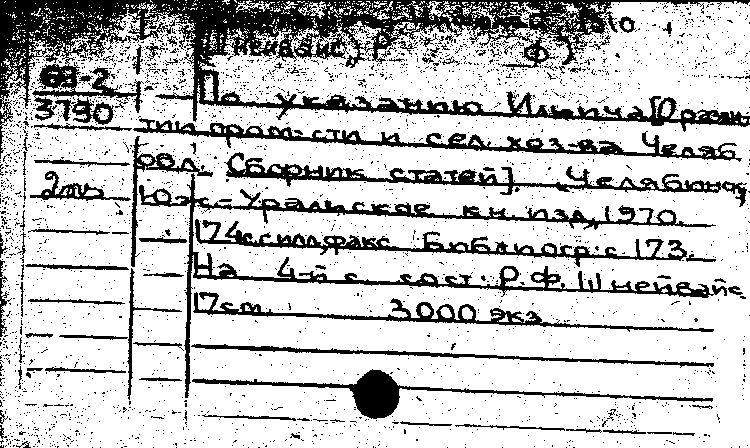 1910
Шнейвайс, Р Ф)
68-2
3790
По указанию Ильича [О развит
тии пром-сти и сел. хоз-ва Челяб.
обл. Сборник статей]. Челябинск,
2 экз
Юж.-Уральское кн. изд., 1970.
174 с. с илл., факс. Библиогр.: с 173.
На 4-й с. сост.: Р.Ф. Шнейвайс
17 см. 3000 экз.